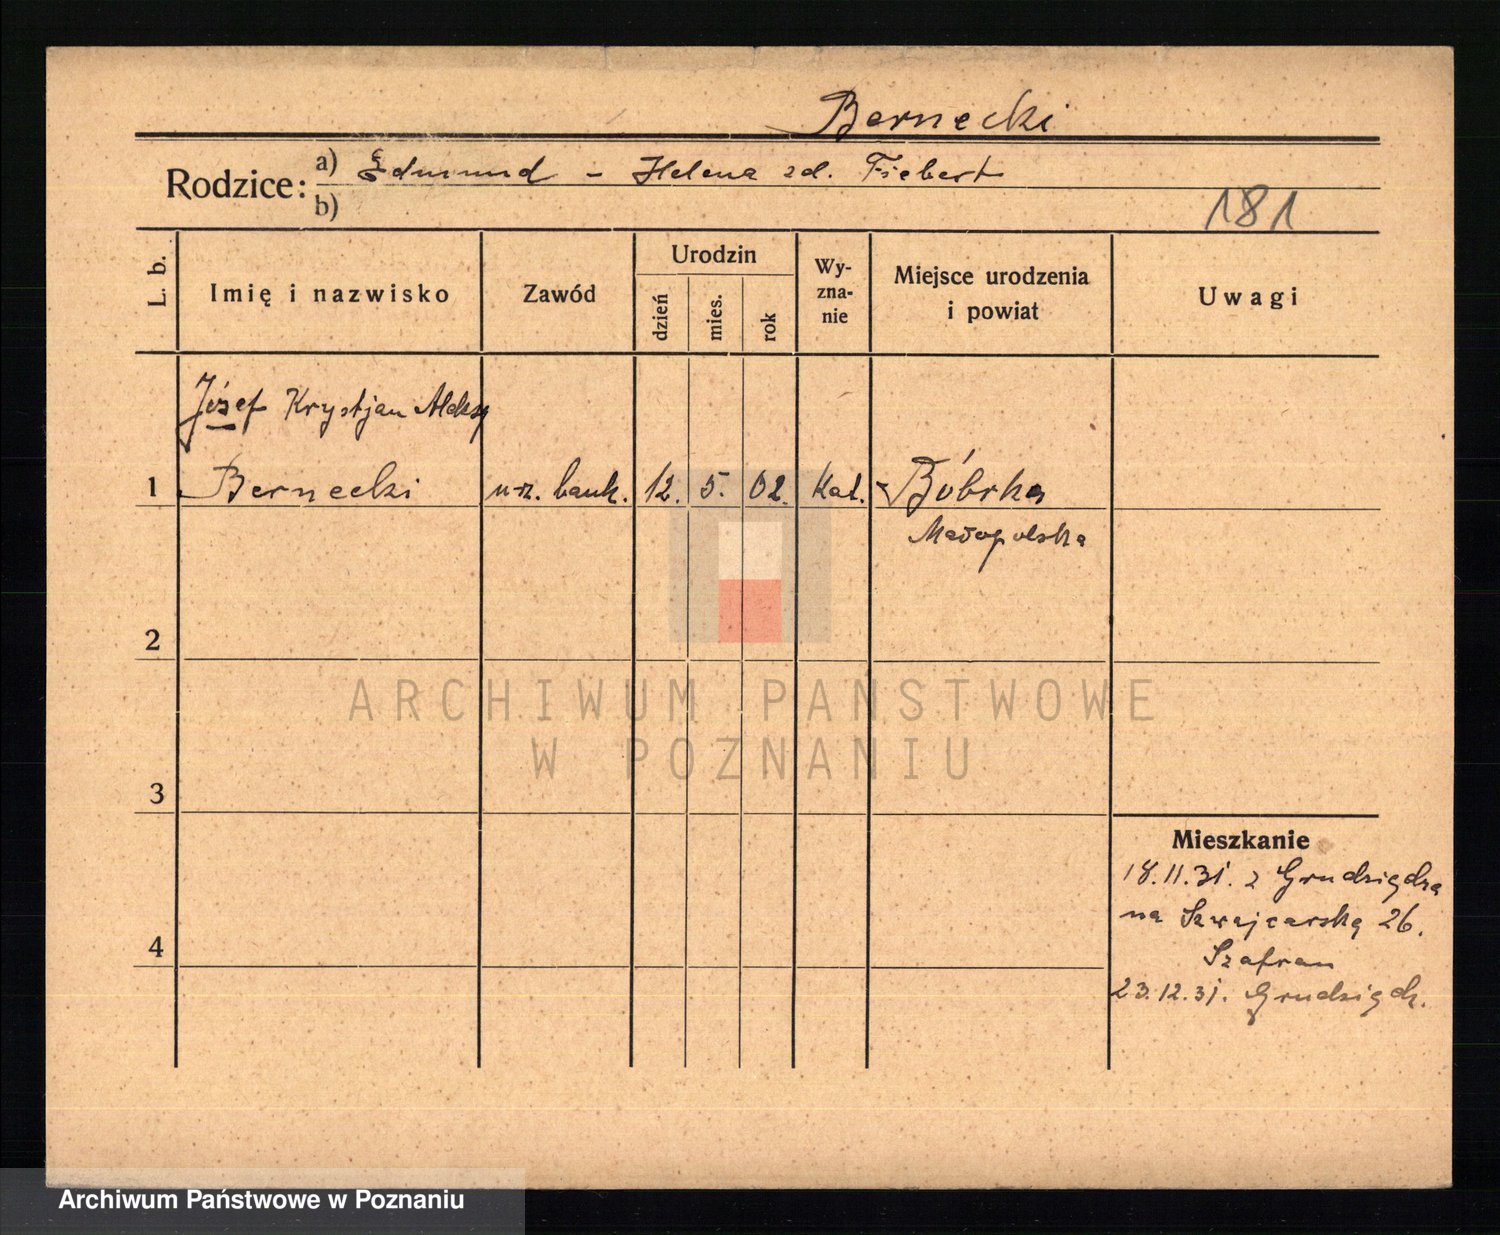 Bernecki
Rodzice: a) Edmund – Helena zd. Fiebert
b)
181
L. b.
Imię i nazwisko
Zawód
Urodzin
dzień
mies.
rok
Wy-
zna-
nie
Miejsce urodzenia
i powiat
Uwagi
Józef Krystjan Aleksy
1 Bernecki urz. bank. 12. 5. 02. Kat. Bóbrka
Małopolska
2
ARCHIWUM PAŃSTWOWE
W POZNANIU
3
Mieszkanie
18.11.31. z Grudziądza
na Szwajcarską 26.
4
Szafran
23.12.31. Grudziądz.
Archiwum Państwowe w Poznaniu